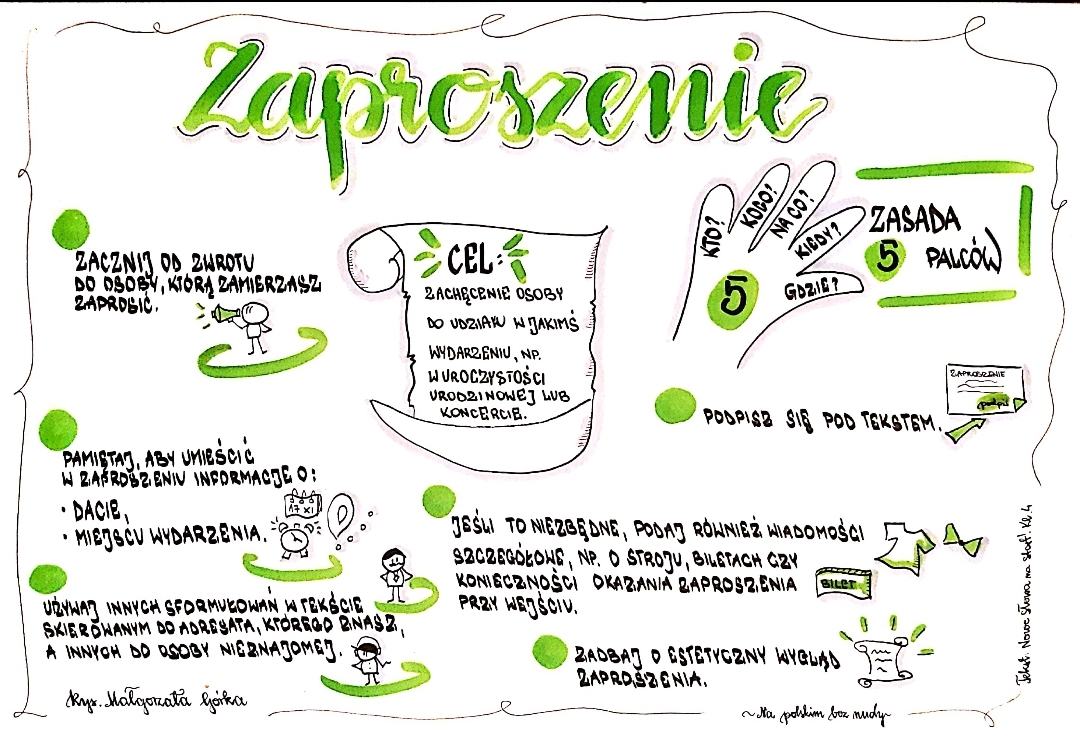 Zaproszenie
ZACZNIJ OD ZWROTU
DO OSOBY, KTÓRĄ ZAMIERZASZ
ZAPROSIĆ.
CEL:
ZACHĘCENIE OSOBY
DO UDZIAŁU W JAKIMŚ
WYDARZENIU, NP.
W UROCZYSTOŚCI
URODZINOWEJ LUB
KONCERCIE.
KTO?
KOGO?
NA CO?
KIEDY?
GDZIE?
5
ZASADA
5 PALCÓW
ZAPROSZENIE
podpis
PODPISZ SIĘ POD TEKSTEM.
PAMIĘTAJ, ABY UMIEŚCIĆ
W ZAPROSZENIU INFORMACJE O:
• DACIE,
• MIEJSCU WYDARZENIA.
17 XI
UŻYWAJ INNYCH SFORMUŁOWAŃ W TEKŚCIE
SKIEROWANYM DO ADRESATA, KTÓREGO ZNASZ,
A INNYCH DO OSOBY NIEZNAJOMEJ.
JEŚLI TO NIEZBĘDNE, PODAJ RÓWNIEŻ WIADOMOŚCI
SZCZEGÓŁOWE, NP. O STROJU, BILETACH CZY
KONIECZNOŚCI OKAZANIA ZAPROSZENIA
PRZY WEJŚCIU.
BILET
ZADBAJ O ESTETYCZNY WYGLĄD
ZAPROSZENIA.
Rys. Małgorzata Górka
~Na polskim bez nudy~
Tekst: Nowe słowa na start! Kl. 4